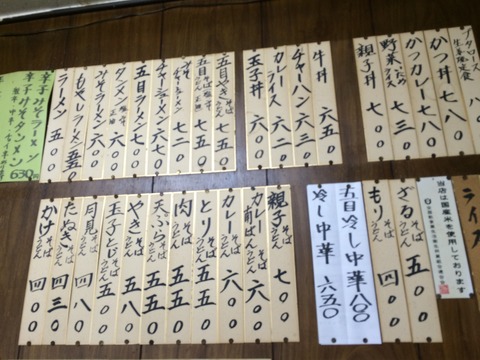 ブタロース
生姜焼定食
かつ丼 七八〇
かつカレー 七八〇
野菜いためライス 七三〇
親子丼 七〇〇
牛丼 六五〇
チャーハン 六三〇
カレーライス 六二〇
玉子丼 六〇〇
五目やきそば 七五〇
五目そばうどん 七五〇
チャーシューメン 七二〇
五目ラーメン 六七〇
タンメン 六〇〇
みそラーメン 六〇〇
もやしラーメン 五五〇
ラーメン 五〇〇
辛子みそラーメン
辛子みそタンメン
630円
ライス
当店は国産米を使用しております
ざるそば 五〇〇
もりそばうどん 四〇〇
五目冷し中華 八〇〇
冷し中華 六五〇
親子そばうどん 七〇〇
カレー南ばんそばうどん 六〇〇
カレーそばうどん 六〇〇
とりそばうどん 五五〇
肉そばうどん 五五〇
天ぷらそばうどん 五五〇
やきそばうどん 五八〇
玉子とじそばうどん 五〇〇
月見そばうどん 四八〇
たぬきそばうどん 四三〇
かけそばうどん 四〇〇